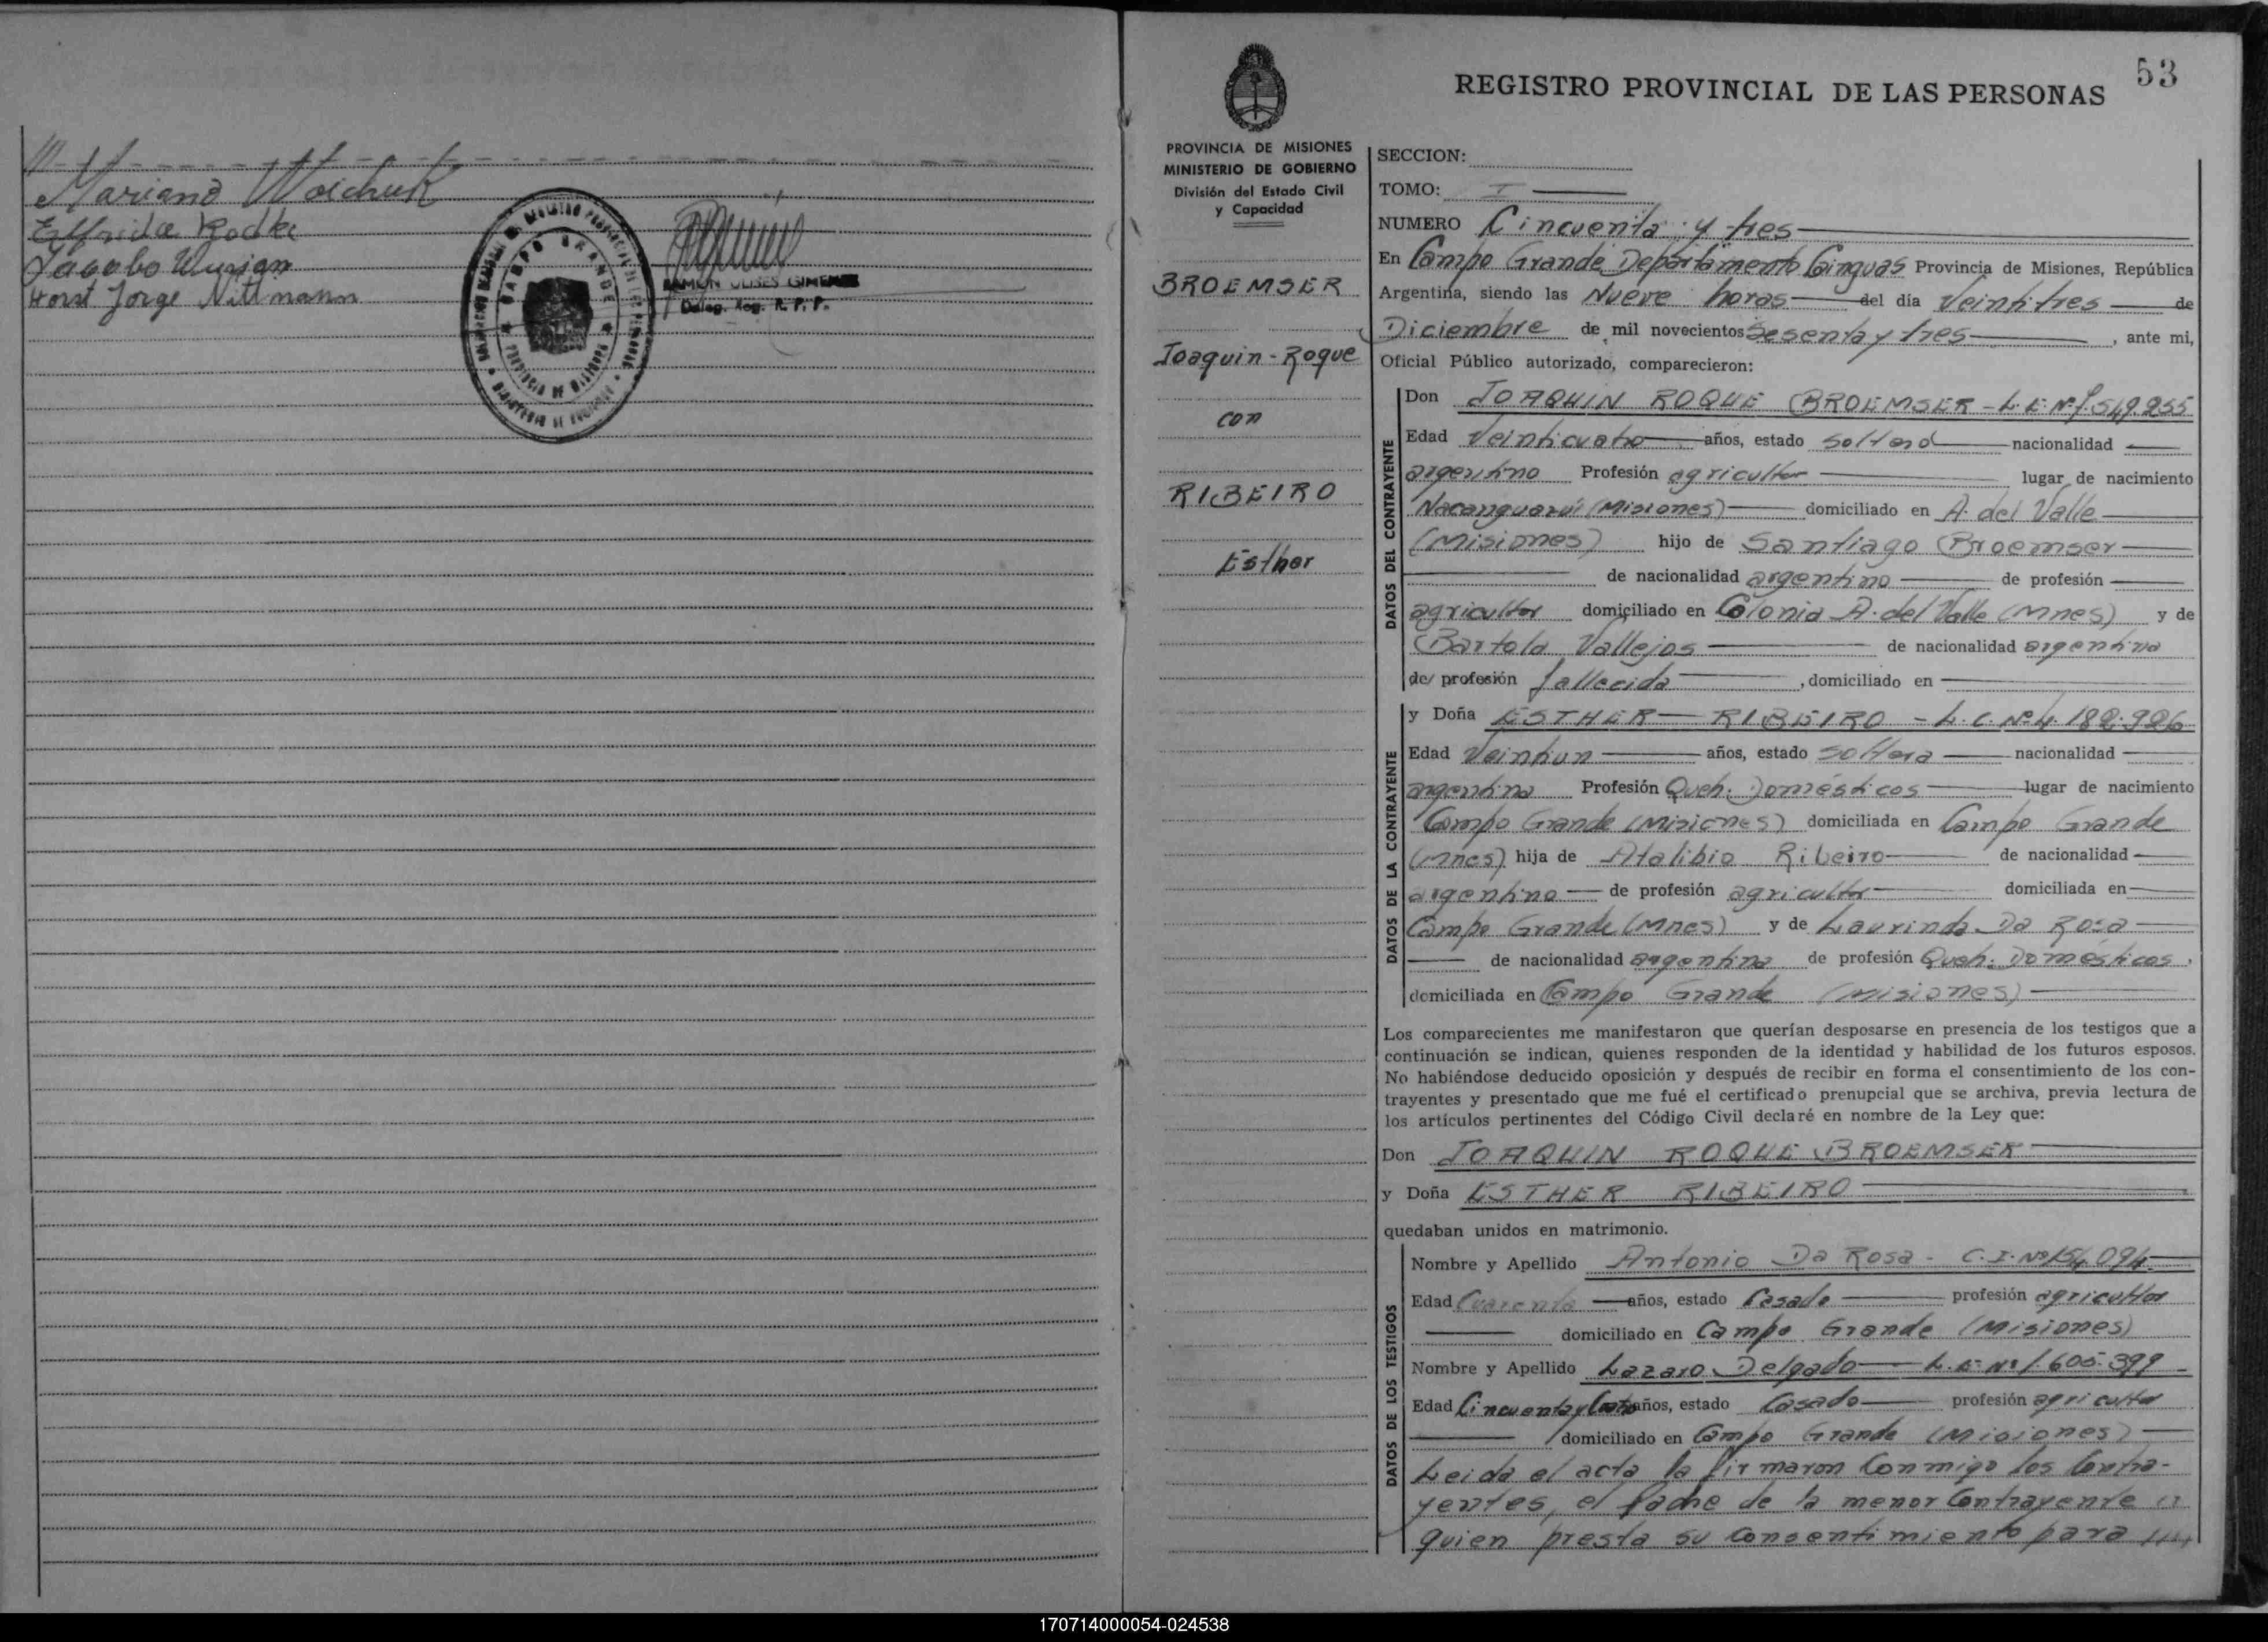 Mariano Woichuk
Elfrida Rodke
Jacobo
Horst Jorge Nittmann
CAMPO GRANDE
PROVINCIA DE MISIONES
RAMON ULISES GIMENEZ
Deleg. Reg. R. P. P.
53
REGISTRO PROVINCIAL DE LAS PERSONAS
PROVINCIA DE MISIONES
MINISTERIO DE GOBIERNO
División del Estado Civil
y Capacidad
BROEMSER
Joaquin-Roque
con
RIBEIRO
Esther
SECCION:
TOMO: I
NUMERO Cincuenta y tres
En Campo Grande Departamento Cainguas Provincia de Misiones, República
Argentina, siendo las Nueve horas del día Veintitres de
Diciembre de mil novecientos Sesenta y tres, ante mi,
Oficial Público autorizado, comparecieron:
DATOS DEL CONTRAYENTE
Don JOAQUIN ROQUE BROEMSER - L.E. Nº 7.549.255
Edad Veinticuatro años, estado soltero nacionalidad
argentino Profesión agricultor lugar de nacimiento
Ñacanguazú (Misiones) domiciliado en A. del Valle
(Misiones) hijo de Santiago Broemser
de nacionalidad argentino de profesión
agricultor domiciliado en Colonia A. del Valle (Mnes) y de
Bartola Vallejos de nacionalidad argentina
de profesión fallecida, domiciliado en
DATOS DE LA CONTRAYENTE
y Doña ESTHER RIBEIRO - L.C. Nº 4.182.926
Edad Veintiun años, estado soltera nacionalidad
argentina Profesión Queh. Domésticos lugar de nacimiento
Campo Grande (Misiones) domiciliada en Campo Grande
(Mnes) hija de Atalibio Ribeiro de nacionalidad
argentino de profesión agricultor domiciliada en
Campo Grande (Mnes) y de Laurinda Da Rosa
de nacionalidad argentina de profesión Queh. Domésticos,
domiciliada en Campo Grande (Misiones)
Los comparecientes me manifestaron que querían desposarse en presencia de los testigos que a
continuación se indican, quienes responden de la identidad y habilidad de los futuros esposos.
No habiéndose deducido oposición y después de recibir en forma el consentimiento de los con-
trayentes y presentado que me fué el certificado prenupcial que se archiva, previa lectura de
los artículos pertinentes del Código Civil declaré en nombre de la Ley que:
Don JOAQUIN ROQUE BROEMSER
y Doña ESTHER RIBEIRO
quedaban unidos en matrimonio.
DATOS DE LOS TESTIGOS
Nombre y Apellido Antonio Da Rosa - C.I. Nº 154.094
Edad Cuarenta años, estado Casado profesión agricultor
domiciliado en Campo Grande (Misiones)
Nombre y Apellido Lazaro Delgado L.E. Nº 1.605.399
Edad Cincuenta y Cuatro años, estado Casado profesión agricultor
domiciliado en Campo Grande (Misiones)
Leida el acta la firmaron conmigo los Contra-
yentes, el Padre de la menor Contrayente
quien presta su consentimiento para
170714000054-024538